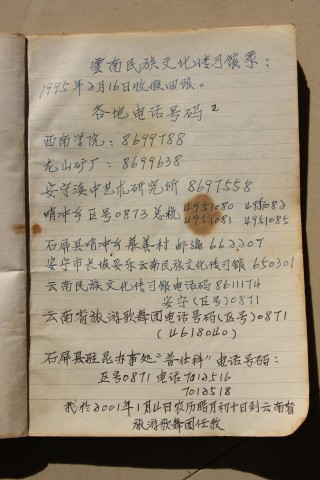 云南民族文化传习馆系：
1995年2月16日收假回馆。
各地电话号码2
西南学院：8699788
龙山矿厂：8699638
安宁滇中艺术研究所 8697558
哨冲乡区号0873总机 4951080 4951082
4951081 4951085
石屏县哨冲乡慕善村 邮编 662207
安宁市长坡委东云南民族文化传习馆 650301
云南民族文化传习馆电话号码 8611174
安宁(区号)0871
云南省旅游歌舞团电话号码(区号)0871
(4618040)
石屏县驻昆办事处"普仕祥"电话号码：
区号0871 电话7012516
7012518
我於2001年1月4日农历腊月初十日到云南省
旅游歌舞团任教